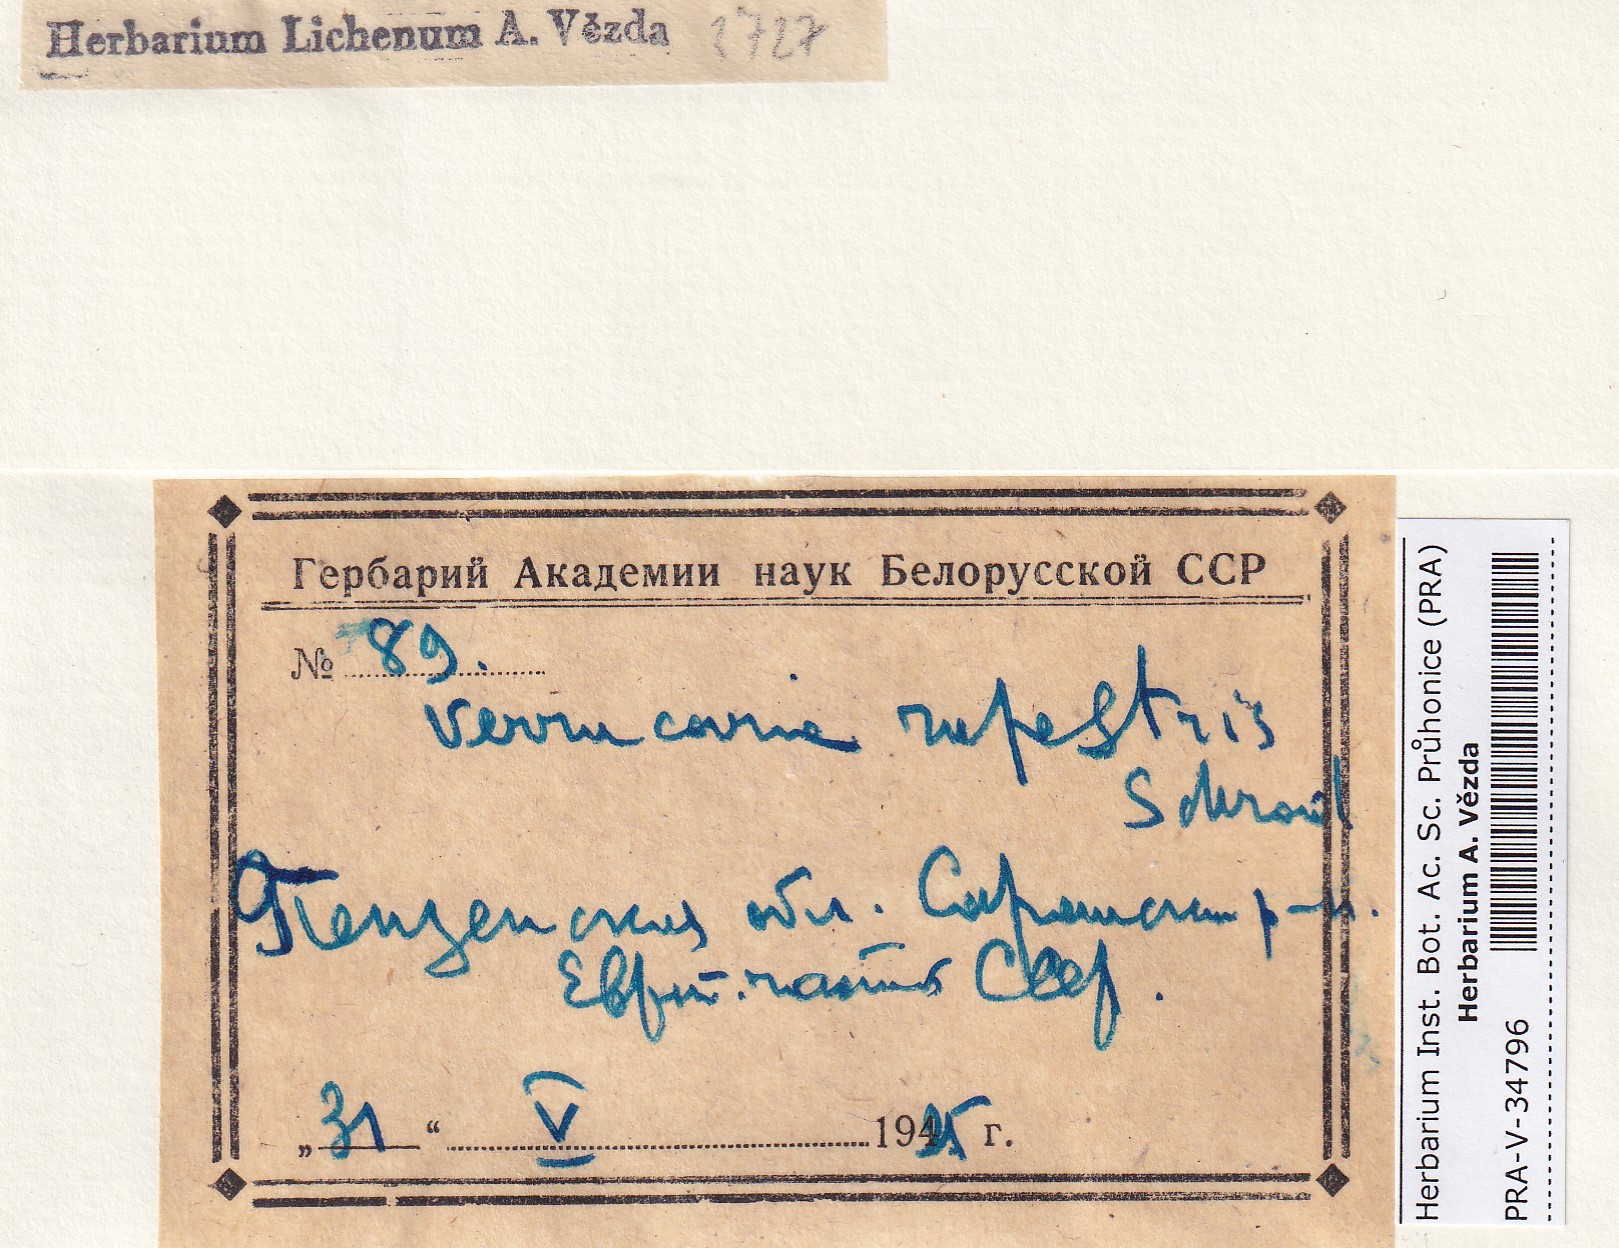 Herbarium Lichenum A. Vězda 2727
Гербарий Академии наук Белорусской ССР
№ 89.
Verrucaria rupestris
Schrad
Пензенская обл. р-н.
часть СССР.
„31“ V 19 г.
Herbarium Inst. Bot. Ac. Sc. Průhonice (PRA)
Herbarium A. Vězda
PRA-V-34796